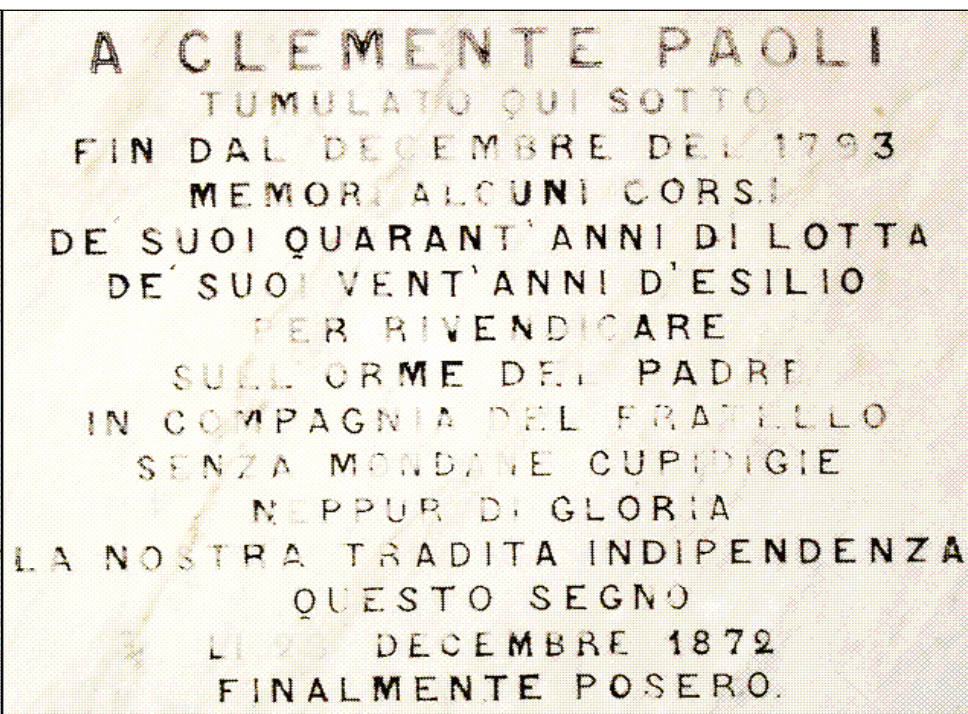 A CLEMENTE PAOLI
TUMULATO QUI SOTTO
FIN DAL DECEMBRE DEL 1793
MEMORI ALCUNI CORSI
DE SUOI QUARANT'ANNI DI LOTTA
DE' SUOI VENT'ANNI D'ESILIO
PER RIVENDICARE
SULL'ORME DEL PADRE
IN COMPAGNIA DEL FRATELLO
SENZA MONDANE CUPIDIGIE
NEPPUR DI GLORIA
LA NOSTRA TRADITA INDIPENDENZA
QUESTO SEGNO
LI DECEMBRE 1872
FINALMENTE POSERO.